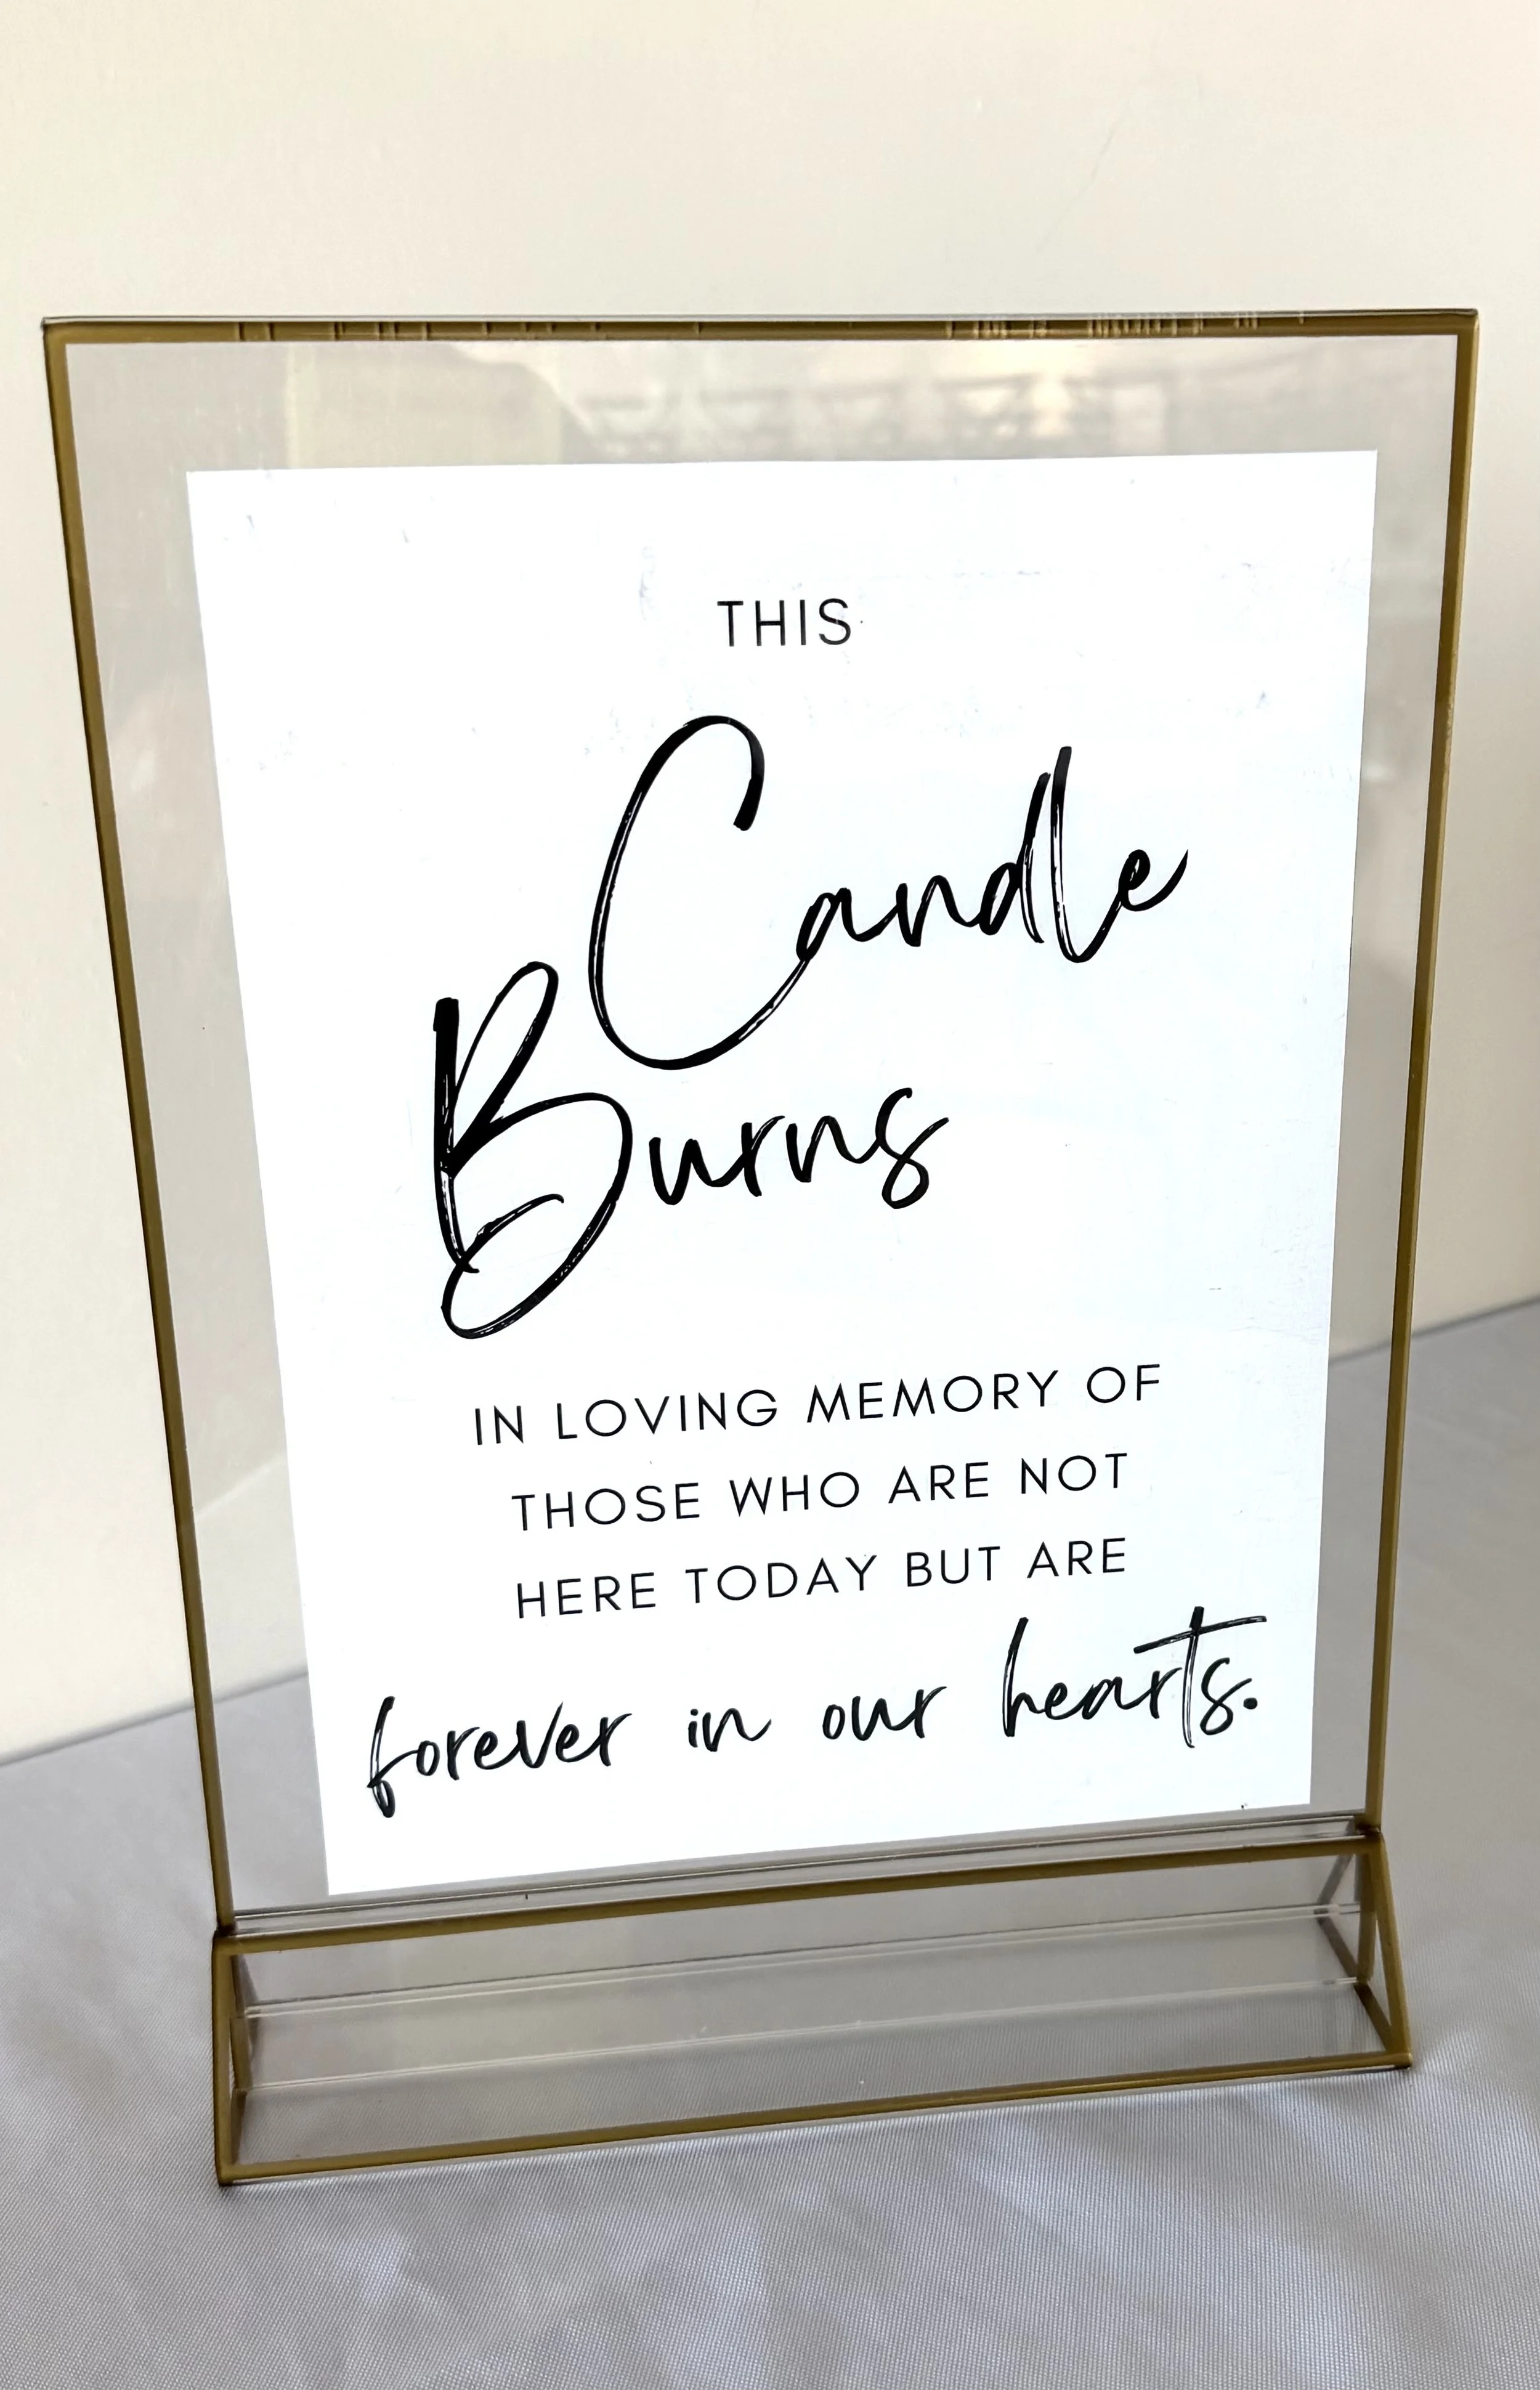 THIS
Candle
Burns
IN LOVING MEMORY OF
THOSE WHO ARE NOT
HERE TODAY BUT ARE
forever in our hearts.